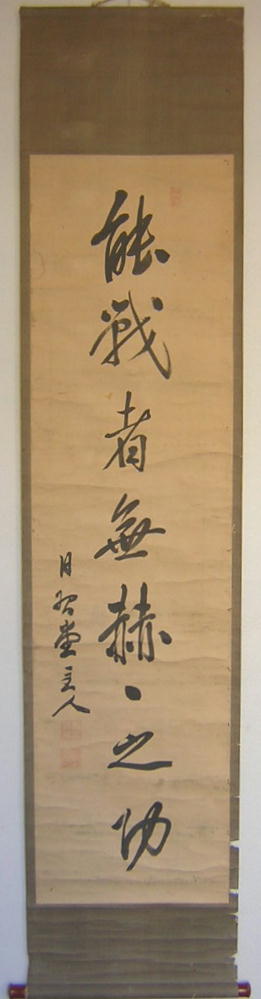 能戰者無赫〻之功
日
堂主人